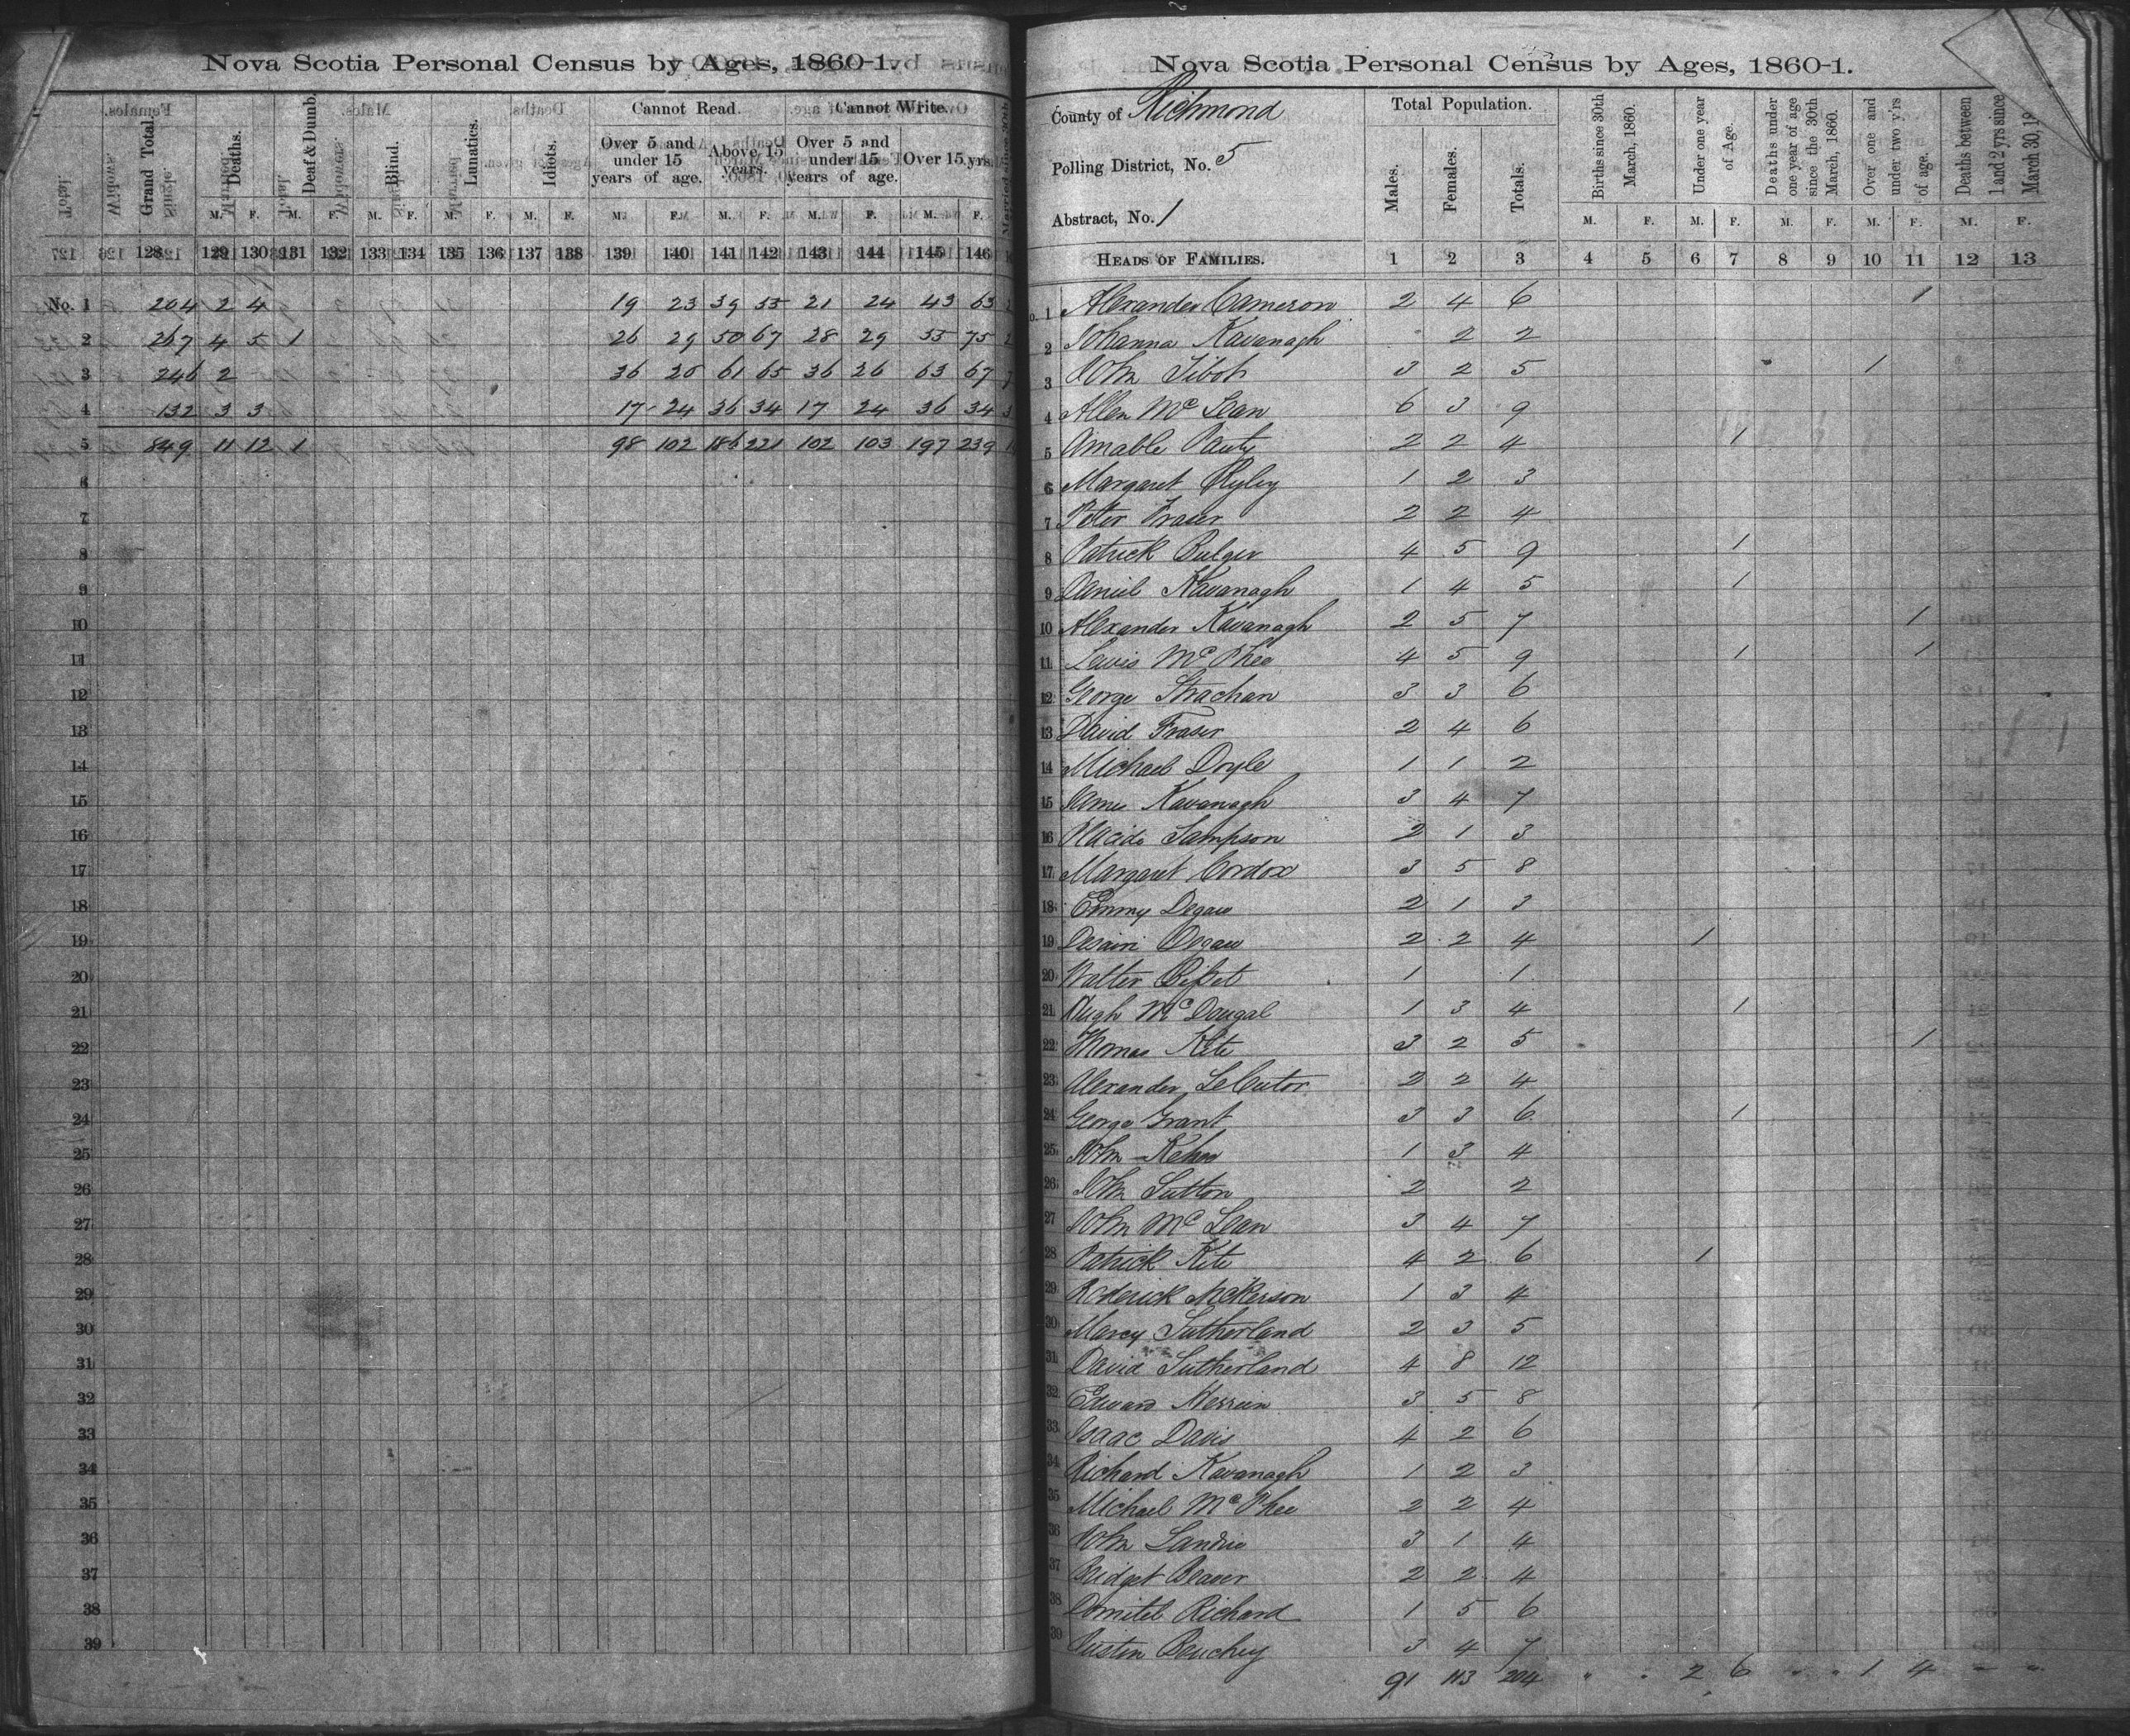 Nova Scotia Personal Census by Ages, 1860-1.
Grand Total. Deaths. Deaf & Dumb. Blind. Lunatics. Idiots. Cannot Read. Cannot Write.
Over 5 and under 15 years of age. Above 15 years. Over 5 and under 15 years of age. Over 15 yrs.
M. F. M. F. M. F. M. F. M. F. M. F. M. F. M. F. M. F.
128 129 130 131 132 133 134 135 136 137 138 139 140 141 142 143 144 145 146
No. 1 204 2 4 19 23 39 55 21 24 43 63
2 267 4 5 1 26 29 50 67 28 29 55 75
3 246 2 36 26 61 65 36 26 63 67
4 132 3 3 17 24 36 34 17 24 36 34
5 849 11 12 1 98 102 186 221 102 103 197 239
6
7
8
9
10
11
12
13
14
15
16
17
18
19
20
21
22
23
24
25
26
27
28
29
30
31
32
33
34
35
36
37
38
39
Nova Scotia Personal Census by Ages, 1860-1.
County of Richmond
Polling District, No. 5
Abstract, No. 1
Heads of Families.
Total Population.
Males. Females. Totals.
Births since 30th March, 1860.
Under one year of Age.
Deaths under one year of age since the 30th March, 1860.
Over one and under two y'rs of age.
Deaths between 1 and 2 yrs since March 30, 18
M. F. M. F. M. F. M. F. M. F.
1 2 3 4 5 6 7 8 9 10 11 12 13
1 Alexander Cameron 2 4 6 1
2 Johanna Kavanagh 2 2
3 John Tibot 3 2 5 1
4 Allen McLean 6 3 9
5 Amable Pauty 2 2 4 1
6 Margaret Ryley 1 2 3
7 Peter Fraser 2 2 4
8 Patrick Bulger 4 5 9 1
9 Daniel Kavanagh 1 4 5 1
10 Alexander Kavanagh 2 5 7 1
11 Lewis McPhee 4 5 9 1 1
12 George Strachan 3 3 6
13 David Fraser 2 4 6
14 Michael Doyle 1 1 2
15 James Kavanagh 3 4 7
16 Placide Sampson 2 1 3
17 Margaret Cordox 3 5 8
18 Emmy Degau 2 1 3
19 Desairi Degau 2 2 4 1
20 Walter Bisset 1 1
21 Hugh McDougal 1 3 4 1
22 Thomas Kite 3 2 5 1
23 Alexander LeCutor 2 2 4
24 George Grant 3 3 6 1
25 John Kehoe 1 3 4
26 John Sutton 2 2
27 John McLean 3 4 7
28 Patrick Kite 4 2 6 1
29 Roderick McKerson 1 3 4
30 Marcy Sutherland 2 3 5
31 David Sutherland 4 8 12
32 Edward 3 5 8
33 Isaac Davis 4 2 6
34 Richard Kavanagh 1 2 3
35 Michael McPhee 2 2 4
36 John Landrie 3 1 4
37 Bridget Beaver 2 2 4
38 Domitel Richard 1 5 6
39 Beuchey 3 4 7
91 113 204 " " 2 6 " " 1 4 " "